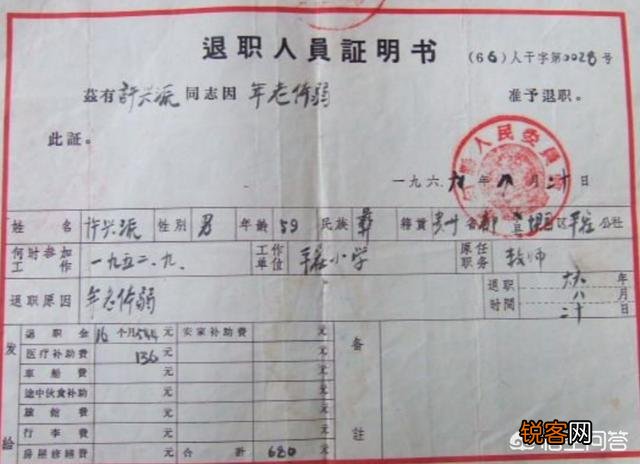 退职人員証明书
(66)人干字第0028号
茲有許兴派同志因年老体弱 准予退职。
此証。
人民委員
一九六六年八月二十日
姓名 許兴派 性別 男 年龄 59 民族 彝 籍貫 貴州省 县 区 公社
何时参加工作 一九五二.九. 工作单位 小学 原任职务 教师
退职原因 年老体弱 退职时間 六六年八月二十日
发給 退职金 16个月544元 安家补助費 元 备註
医疗补助費 136元 元
車船費 元 元
途中伙食补助 元 元
旅館費 元 元
行李費 元 元
房屋修繕費 元 合計 680元
锐客网
悟空问答